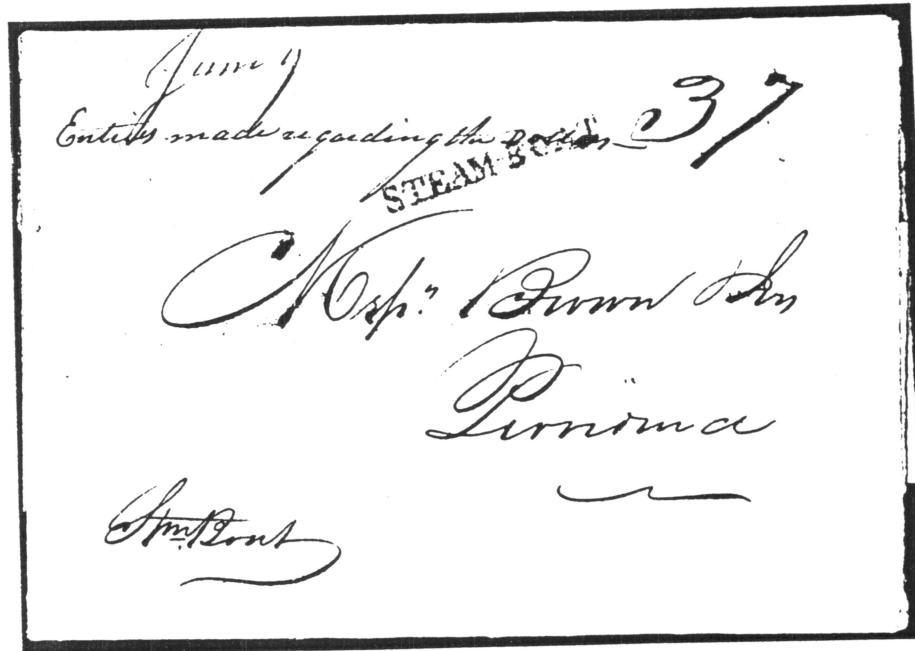 June 9
Entries made regarding the Dollars
37
STEAM-BOAT
Messrs. Brown & Ives
Providence
Stm. Boat